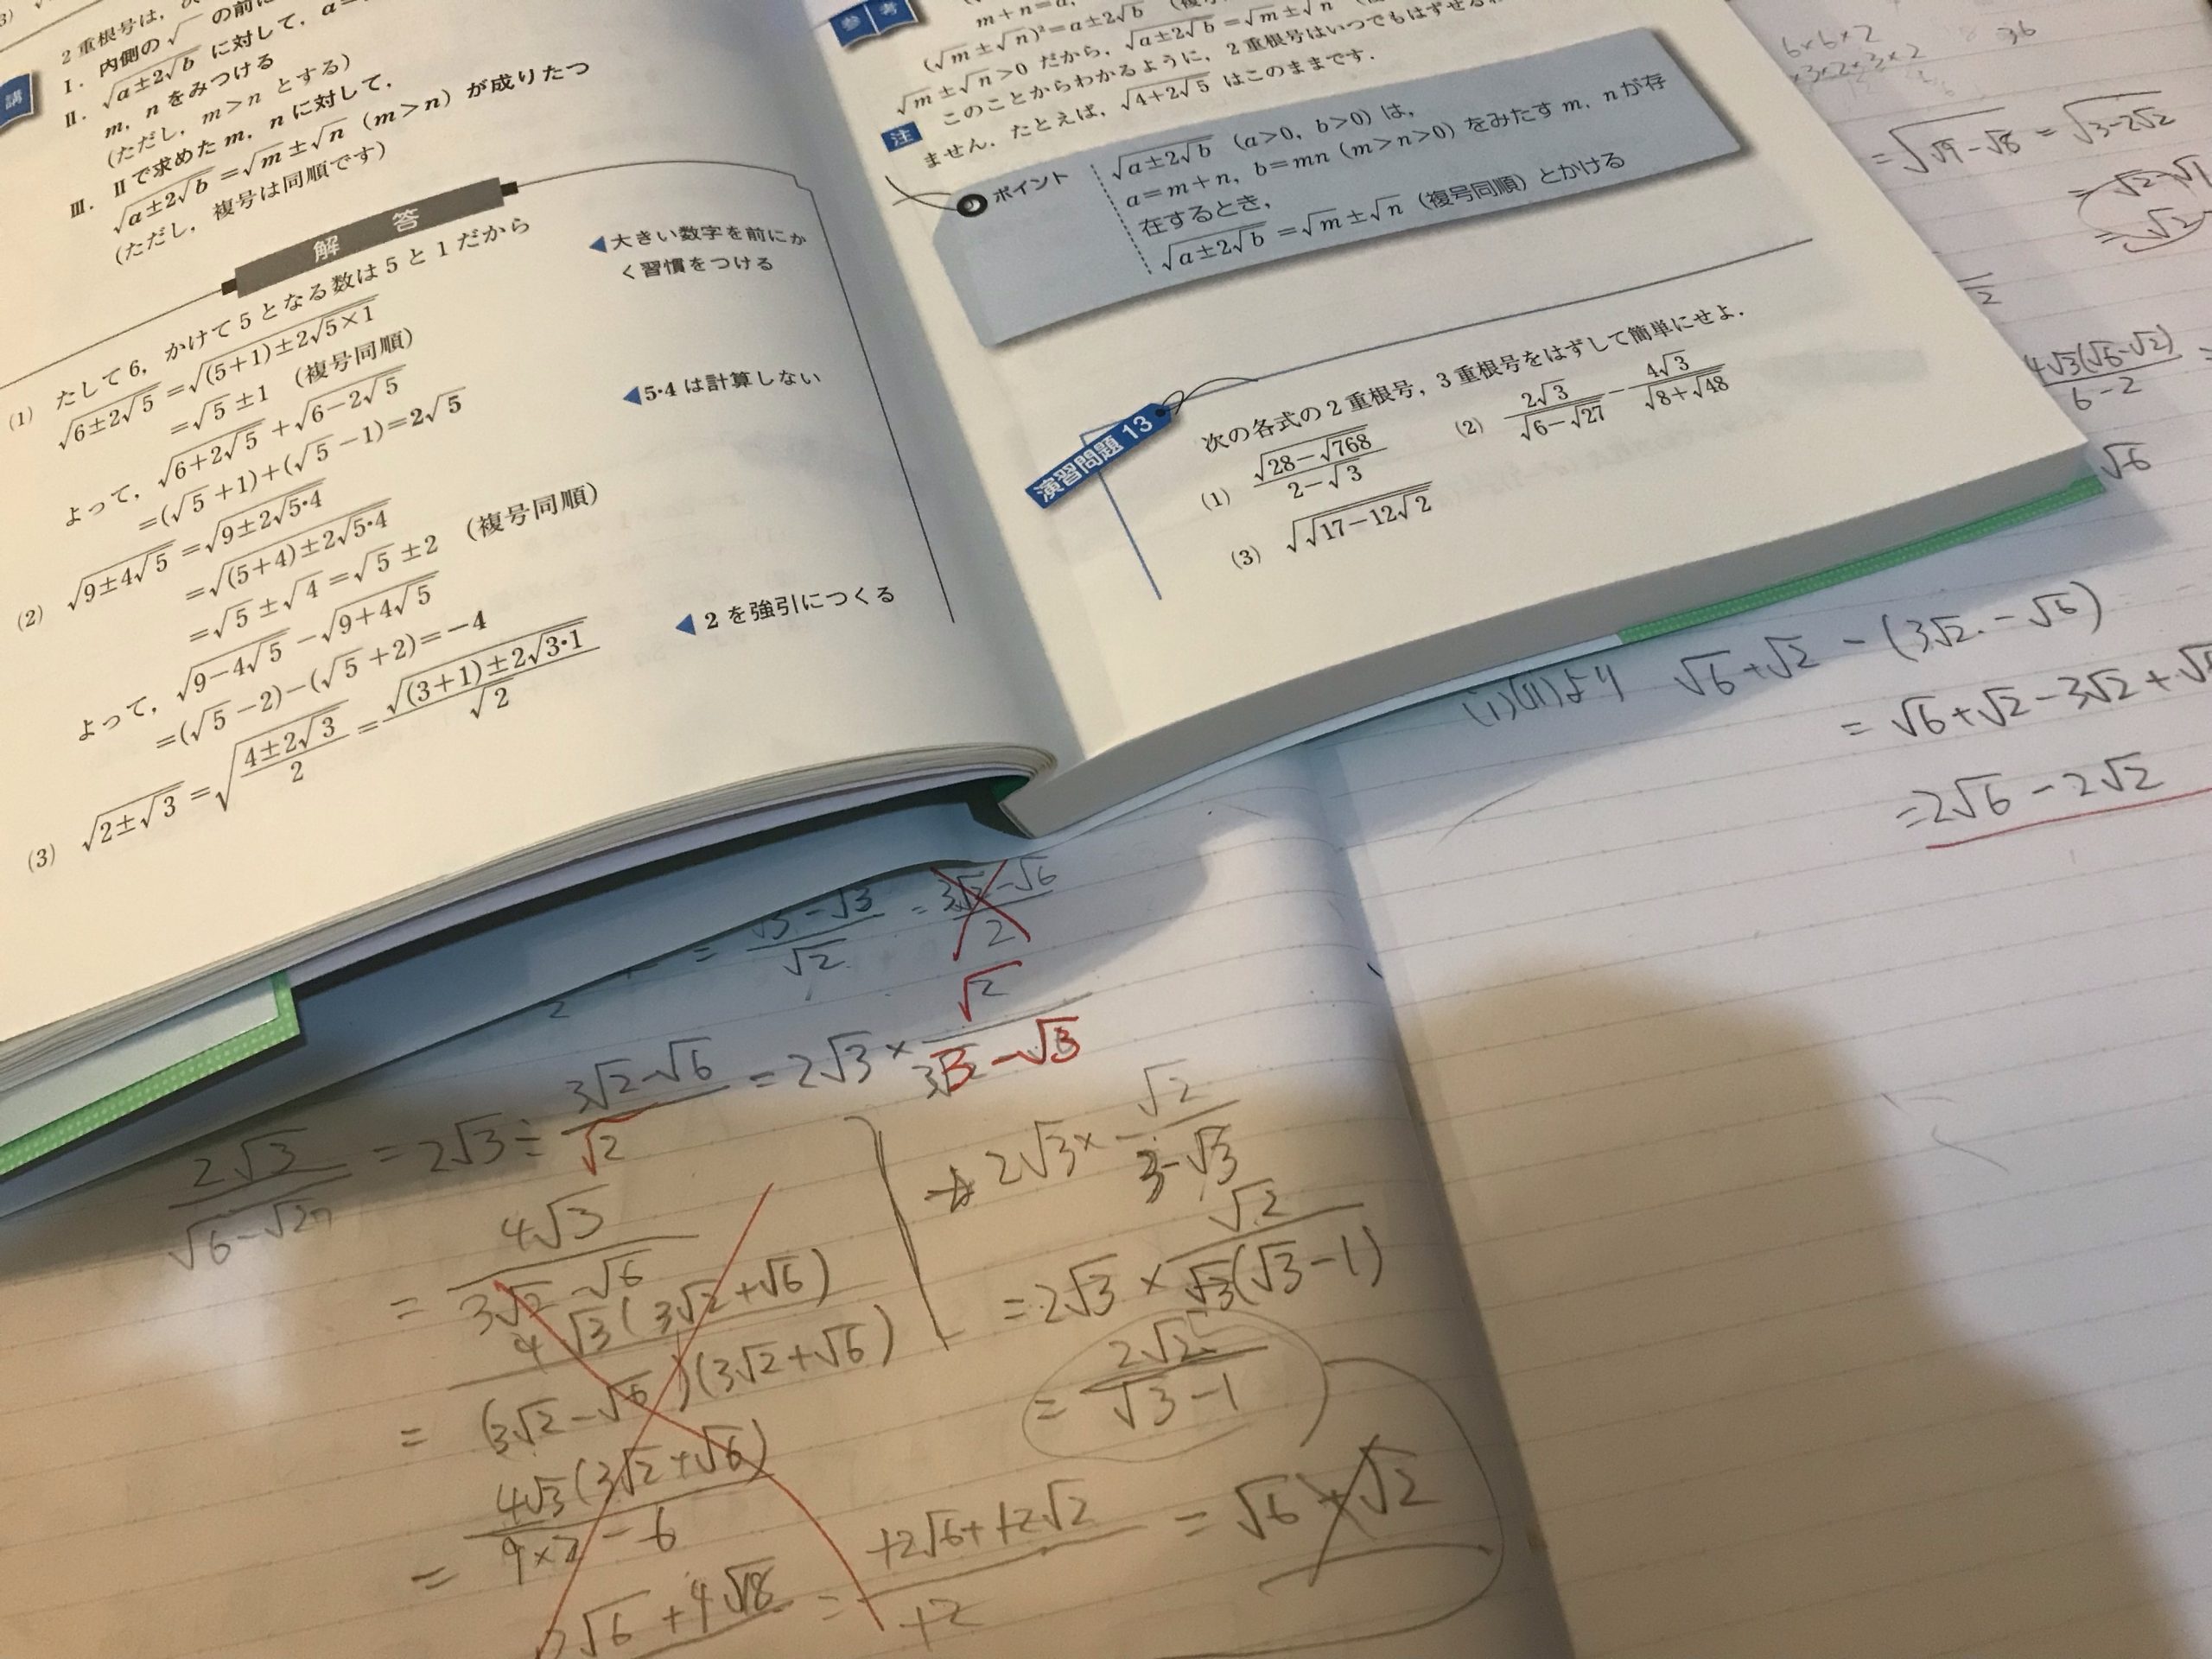 2重根号は,
I. 内側の√ の前に
II. √(a±2√b) に対して,
m, n をみつける
(ただし, m>n とする)
III. IIで求めた m, n に対して,
√(a±2√b)=√m±√n (m>n) が成りたつ
(ただし, 複号は同順です)
解 答
(1) たして6, かけて5となる数は5と1だから
√(6±2√5)=√((5+1)±2√(5×1))
=√5±1 (複号同順)
よって, √(6+2√5)+√(6-2√5)
=(√5+1)+(√5-1)=2√5
(2) √(9±4√5)=√(9±2√(5・4))
=√((5+4)±2√(5・4))
=√5±√4=√5±2 (複号同順)
よって, √(9-4√5)-√(9+4√5)
=(√5-2)-(√5+2)=-4
(3) √(2±√3)=√((4±2√3)/2)=√((3+1)±2√(3・1))/√2
◀大きい数字を前にか
く習慣をつける
◀5・4は計算しない
◀2を強引につくる
参考
m+n=a,
(√m±√n)²=a±2√b
√m±√n>0 だから, √(a±2√b)=√m±√n
注 このことからわかるように, 2重根号はいつでもはずせる
ません. たとえば, √(4+2√5) はこのままです.
ポイント
√(a±2√b) (a>0, b>0) は,
a=m+n, b=mn (m>n>0) をみたす m, n が存
在するとき,
√(a±2√b)=√m±√n (複号同順) とかける
演習問題 13
次の各式の2重根号, 3重根号をはずして簡単にせよ.
(1) √(28-√768)/(2-√3)
(2) 2√3/√(6-√27) - 4√3/√(8+√48)
(3) √√(17-12√2)
6×6×2
36
=√(√9-√8)=√(3-2√2)
4√3(√6-√2)/(6-2)
√6
(i)(ii)より √6+√2-(3√2-√6)
=√6+√2-3√2+√6
=2√6-2√2
2√3/√(6-√27)=2√3÷(3√2-√6)/√2=2√3×√2/(3-√3)
=4√3/(3√2-√6)
=4√3(3√2+√6)/(3√2-√6)(3√2+√6)
=4√3(3√2+√6)/(9×2-6)
2√3×√2/(3-√3)
=2√3×√2/(√3(√3-1))
=2√2/(√3-1)
=√6+√2